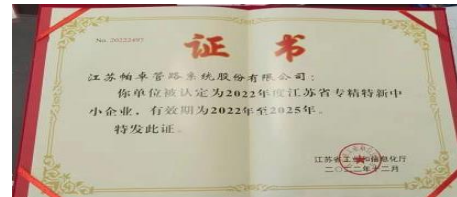 No. 20222495
证 书
江苏帕卓管路系统股份有限公司：
你单位被认定为2022年度江苏省专精特新中
小企业，有效期为2022年至2025年。
特发此证。
江苏省工业和信息化厅
二〇二二年十二月